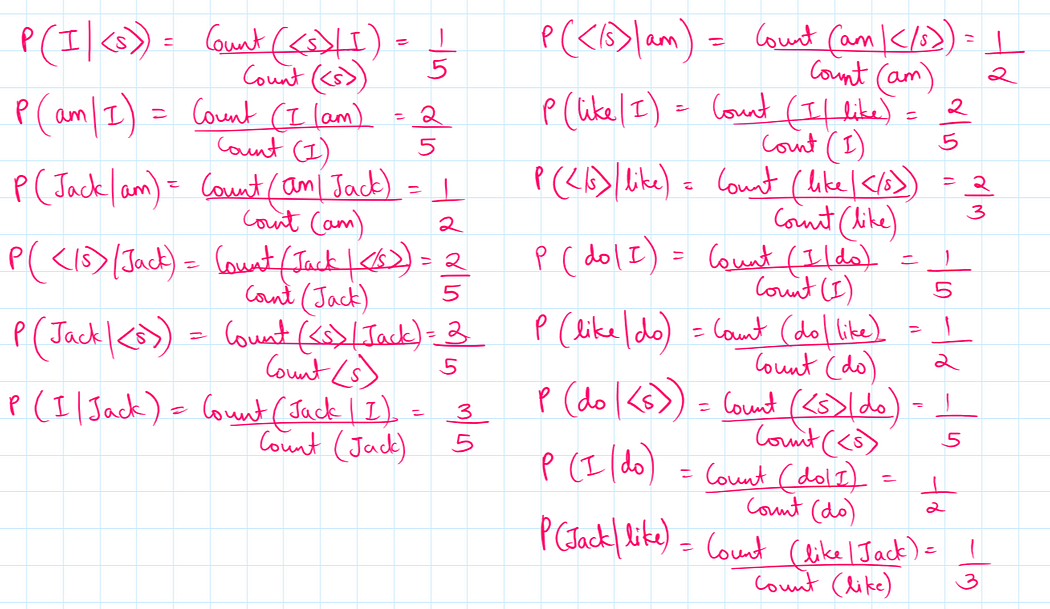 P(I|<s>) = Count(<s>|I) / Count(<s>) = 1/5
P(am|I) = Count(I|am) / Count(I) = 2/5
P(Jack|am) = Count(am|Jack) / Count(am) = 1/2
P(</s>|Jack) = Count(Jack|</s>) / Count(Jack) = 2/5
P(Jack|<s>) = Count(<s>|Jack) / Count<s> = 3/5
P(I|Jack) = Count(Jack|I) / Count(Jack) = 3/5
P(</s>|am) = Count(am|</s>) / Count(am) = 1/2
P(like|I) = Count(I|like) / Count(I) = 2/5
P(</s>|like) = Count(like|</s>) / Count(like) = 2/3
P(do|I) = Count(I|do) / Count(I) = 1/5
P(like|do) = Count(do|like) / Count(do) = 1/2
P(do|<s>) = Count(<s>|do) / Count(<s> = 1/5
P(I|do) = Count(do|I) / Count(do) = 1/2
P(Jack|like) = Count(like|Jack) / Count(like) = 1/3